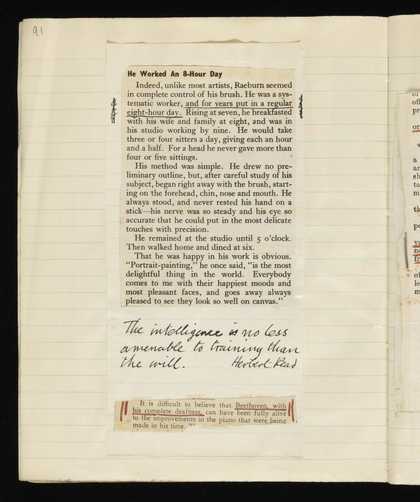 91
He Worked An 8-Hour Day
Indeed, unlike most artists, Raeburn seemed
in complete control of his brush. He was a sys-
tematic worker, and for years put in a regular
eight-hour day. Rising at seven, he breakfasted
with his wife and family at eight, and was in
his studio working by nine. He would take
three or four sitters a day, giving each an hour
and a half. For a head he never gave more than
four or five sittings.
His method was simple. He drew no pre-
liminary outline, but, after careful study of his
subject, began right away with the brush, start-
ing on the forehead, chin, nose and mouth. He
always stood, and never rested his hand on a
stick—his nerve was so steady and his eye so
accurate that he could put in the most delicate
touches with precision.
He remained at the studio until 5 o'clock.
Then walked home and dined at six.
That he was happy in his work is obvious.
"Portrait-painting," he once said, "is the most
delightful thing in the world. Everybody
comes to me with their happiest moods and
most pleasant faces, and goes away always
pleased to see they look so well on canvas."
The intelligence is no less
amenable to training than
the will. Herbert Read
It is difficult to believe that Beethoven, with
his complete deafness, can have been fully alive
to the improvements in the piano that were being
made in his time.